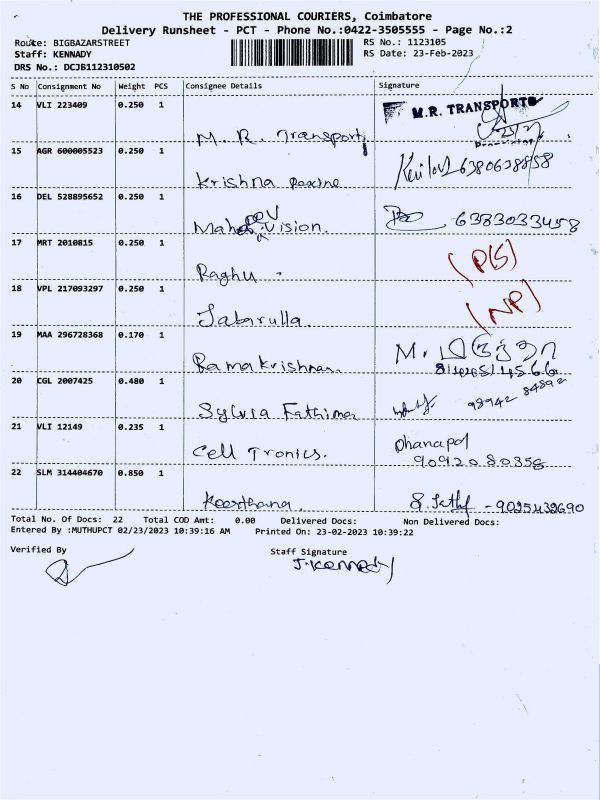 THE PROFESSIONAL COURIERS, Coimbatore
Delivery Runsheet - PCT - Phone No.:0422-3505555 - Page No.:2
Route: BIGBAZARSTREET RS No.: 1123105
Staff: KENNADY RS Date: 23-Feb-2023
DRS No.: DCJB112310502
S No Consignment No Weight PCS Consignee Details Signature
14 VLI 223409 0.250 1 M. R. Transport M.R. TRANSPORTS
15 AGR 600005523 0.250 1 Krishna 6380638858
16 DEL 528895652 0.250 1 Vision. 6383033458
17 MRT 2010815 0.250 1 Raghu (P(S)
18 VPL 217093297 0.250 1 Jabarulla. (NP)
19 MAA 296728368 0.170 1 Ramakrishnan. M.
20 CGL 2007425 0.480 1 Sylvia Fathima 98942 84892
21 VLI 12149 0.235 1 Cell Tronics. Dhanapal
9092080358
22 SLM 314404670 0.850 1 Keerthana - 9025432690
Total No. Of Docs: 22 Total COD Amt: 0.00 Delivered Docs: Non Delivered Docs:
Entered By :MUTHUPCT 02/23/2023 10:39:16 AM Printed On: 23-02-2023 10:39:22
Verified By Staff Signature
J.Kennady